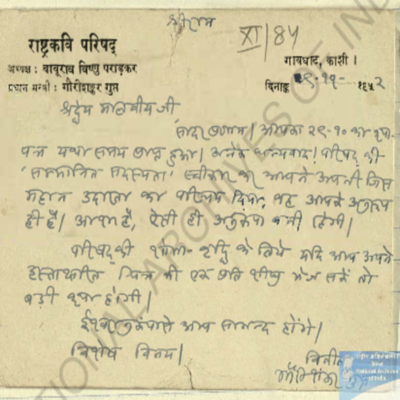 श्रीराम
XI/84
राष्ट्रकवि परिषद्
अध्यक्ष : बाबूराव विष्णु पराड़कर
प्रधान मन्त्री : गौरीशङ्कर गुप्त
गायघाट, काशी ।
दिनाङ्क २९-११- १९५२
श्रद्धेय मालवीय जी
सादर प्रणाम । आपका २९-१० का कृपा-
पत्र यथा समय प्राप्त हुआ । अनेक धन्यवाद ! परिषद् की
'सम्मानित सदस्यता' स्वीकार कर आपने अपनी जिस
महान उदारता का परिचय दिया, वह आपके अनुरूप
ही है । आशा है, ऐसी ही अनुकम्पा बनी रहेगी ।
परिषद् की शोभा-वृद्धि के लिये यदि आप अपने
हस्ताक्षरित चित्र की एक प्रति शीघ्र भेज सकें तो
बड़ी कृपा होगी ।
ईश्वर कृपासे आप सानन्द होंगे ।
विशेष विनय ।
विनीत
गौरीशंकर गुप्त
NATIONAL ARCHIVES OF INDIA